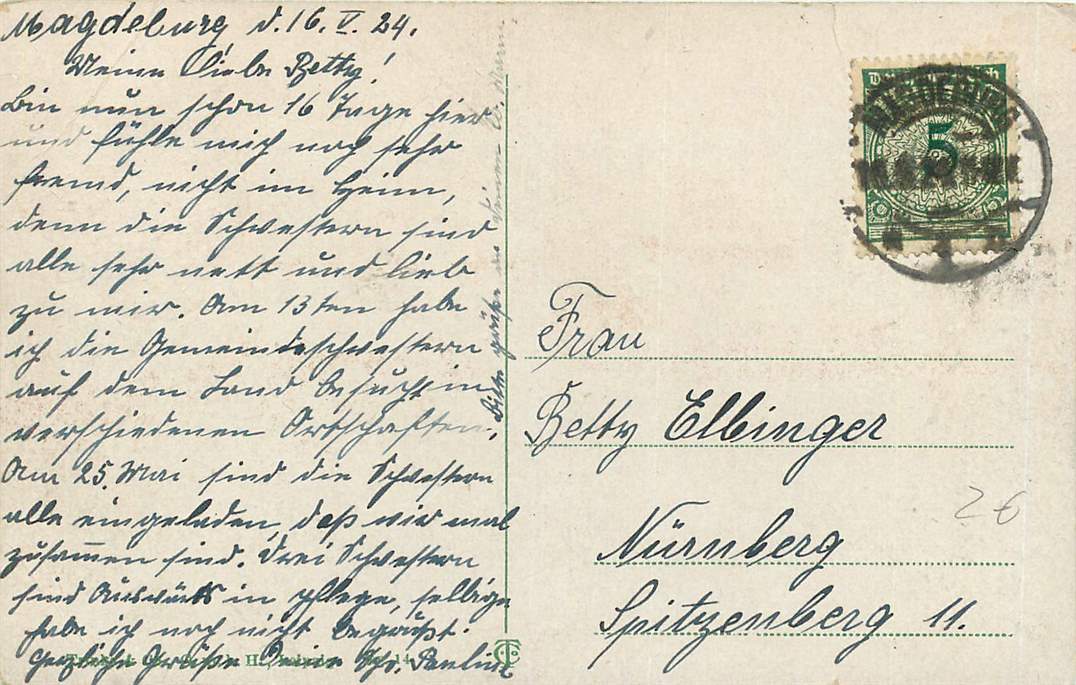 Magdeburg d. 16. V. 24.
Meine liebe Betty!
Bin nun schon 16 Tage hier
und fühle mich noch sehr
fremd, nicht im Heim,
denn die Schwestern sind
alle sehr nett und lieb
zu mir. Am 13ten habe
ich die Gemeindeschwestern
auf dem Land besucht in
verschiedenen Ortschaften.
Am 25. Mai sind die Schwestern
alle eingeladen, daß wir mal
zusammen sind. Drei Schwestern
sind Auswärts in Pflege, selbige
habe ich noch nicht begrüßt.
Herzliche Grüße Deine Schw. Pauline
Bitte grüße
Frau
Betty Elbinger
Nürnberg
Spitzenberg 11.
5
26